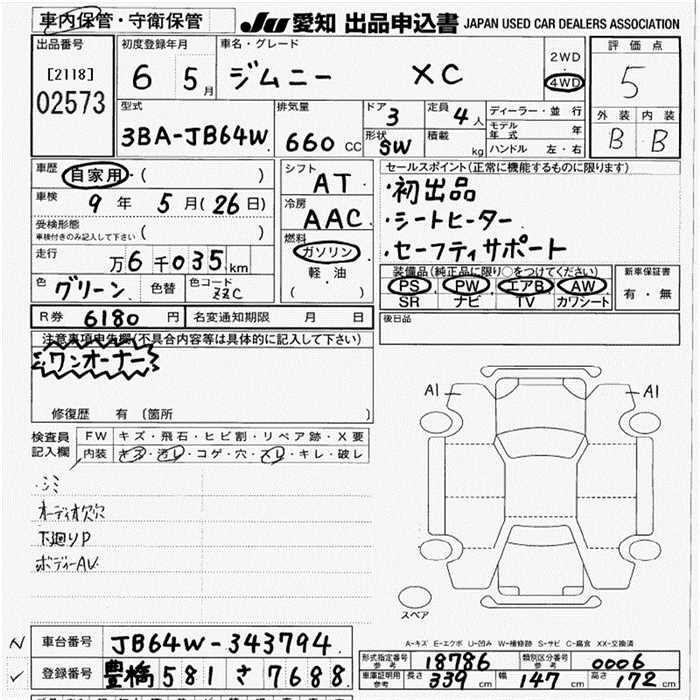 車内保管・守衛保管 JU 愛知 出品申込書 JAPAN USED CAR DEALERS ASSOCIATION
出品番号 初度登録年月 車名・グレード 2WD 評価点
[2118] 6 5月 ジムニー XC ・ 5
02573 4WD
型式 排気量 ドア 3 定員 4人 ディーラー・並行 外装 内装
3BA-JB64W 660 CC 形状 SW 積載 kg モデル年式 年 B B
ハンドル 左・右
車歴 自家用・( ) シフト AT セールスポイント(正常に機能するものに限ります)
車検 9年 5月(26日) 冷房 AAC ・初出品
受検形態 ( ) ・シートヒーター
車検付きのみ記入して下さい 燃料 ・セーフティサポート
走行 万6千035km ガソリン
軽・油 装備品(純正品に限り○をつけてください) 新車保証書
色 グリーン 色替 色コード ZZC ( ) PS・PW・エアB・AW 有・無
SR ナビ TV カワシート
R券 6180円 名変通知期限 月 日 後日品
注意事項申告欄(不具合内容等は具体的に記入して下さい)
ワンオーナー
A1 A1
修復歴 有(箇所 )
検査員 FW キズ・飛石・ヒビ割・リペア跡・X要
記入欄 内装 キズ・汚レ・コゲ・穴・スレ・キレ・破レ
・シミ
オーディオ欠穴
下廻りP
ボディーAV
スペア
車台番号 JB64W-343794 A-キズ E-エクボ U-凹み W-補修跡 S-サビ C-腐食 XX-交換済
形式指定番号 参考 18786 類別区分番号 参考 0006
登録番号 豊橋 581 さ 7688 車庫証明用 参考 長さ 339cm 幅 147cm 高さ 172cm